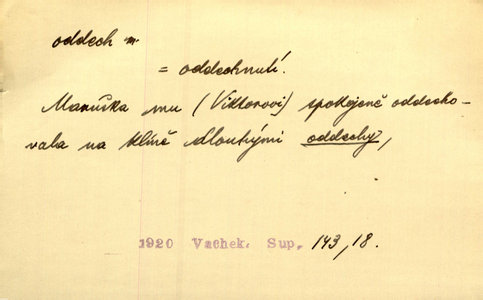 oddech m.
= oddechnutí.
Maruška mu (Viktorovi) spokojeně oddecho-
vala na klíně dlouhými oddechy,
1920 Vachek. Sup. 143,18.